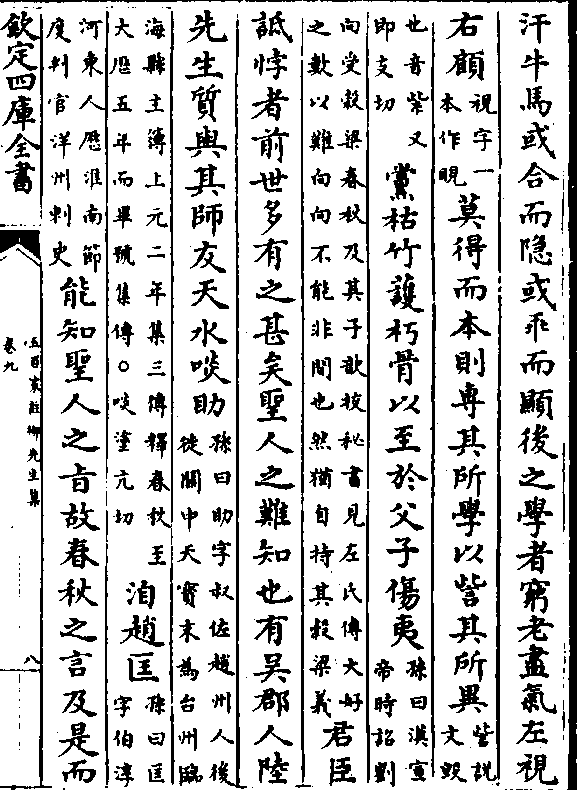 汗牛馬或合而隐或乖而顯後之學者窮老盡氣左視
右顧視字一本作睨莫得而本則専其所學以訾其所異訾説文毁
也音紫又即支切黨枯竹護朽骨以至於父子傷夷孫曰漢宣帝時詔劉
向受穀梁春秋及其子歆校秘書見左氏傳大好之數以難向向不能非間也然猶自持其穀梁義君臣
詆悖者前世多有之甚矣聖人之難知也有吴郡人陸
先生質與其師友天水啖助孫曰助字叔佐趙州人後徙關中天寳末為台州臨
海縣主簿上元二年集三傳釋春秋至大厯五年而畢號集傳○啖塗亢切洎趙匡孫曰匡字伯淳
河東人厯淮南節度判官洋州刺史能知聖人之旨故春秋之言及是而
欽定四庫全書
五百家註柳先生集
卷九
八